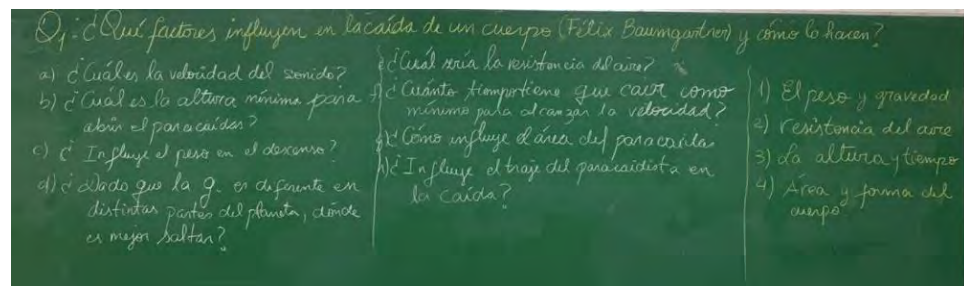 Q1.- ¿Qué factores influyen en la caída de un cuerpo (Félix Baumgartner) y cómo lo hacen?
a) ¿Cuál es la velocidad del sonido?
b) ¿Cuál es la altura mínima para
abrir el paracaídas?
c) ¿Influye el peso en el descenso?
d) ¿Dado que la g. es diferente en
distintas partes del planeta, dónde
es mejor saltar?
e) ¿Cual sería la resistencia del aire?
f) ¿Cuánto tiempo tiene que caer como
mínimo para alcanzar la velocidad?
g) ¿Cómo influye el área del paracaídas
h) ¿Influye el traje del paracaidista en
la caída?
1) El peso y gravedad
2) resistencia del aire
3) La altura y tiempo
4) Área y forma del
cuerpo